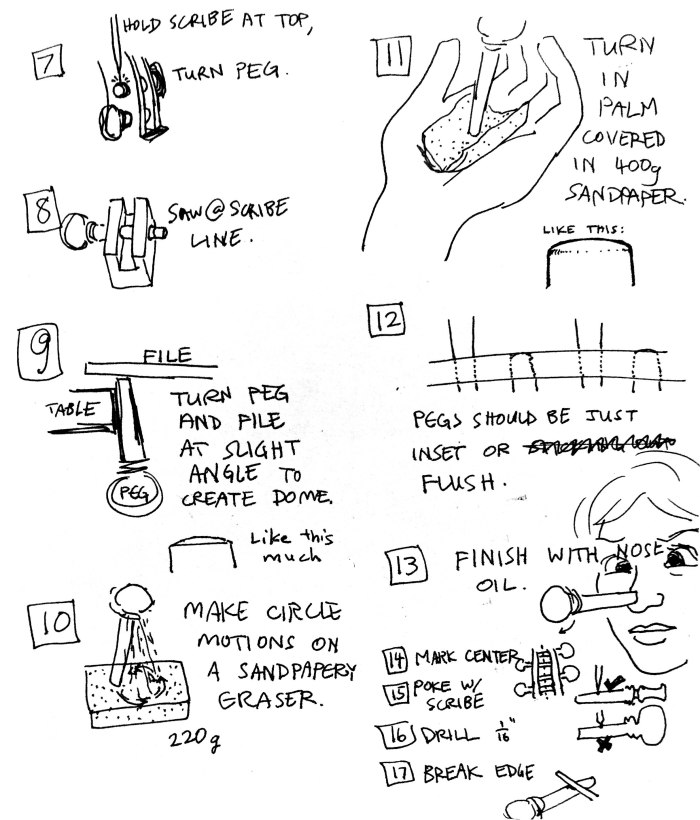 7
HOLD SCRIBE AT TOP,
TURN PEG.
8
SAW @ SCRIBE
LINE.
9
FILE
TABLE
PEG
TURN PEG
AND FILE
AT SLIGHT
ANGLE TO
CREATE DOME.
Like this
much
10
MAKE CIRCLE
MOTIONS ON
A SANDPAPERY
ERASER.
220g
11
TURN
IN
PALM
COVERED
IN 400g
SANDPAPER.
LIKE THIS:
12
PEGS SHOULD BE JUST
INSET OR
FLUSH.
13
FINISH WITH NOSE
OIL.
14 MARK CENTER
15 POKE W/
SCRIBE
16 DRILL 1/16"
17 BREAK EDGE